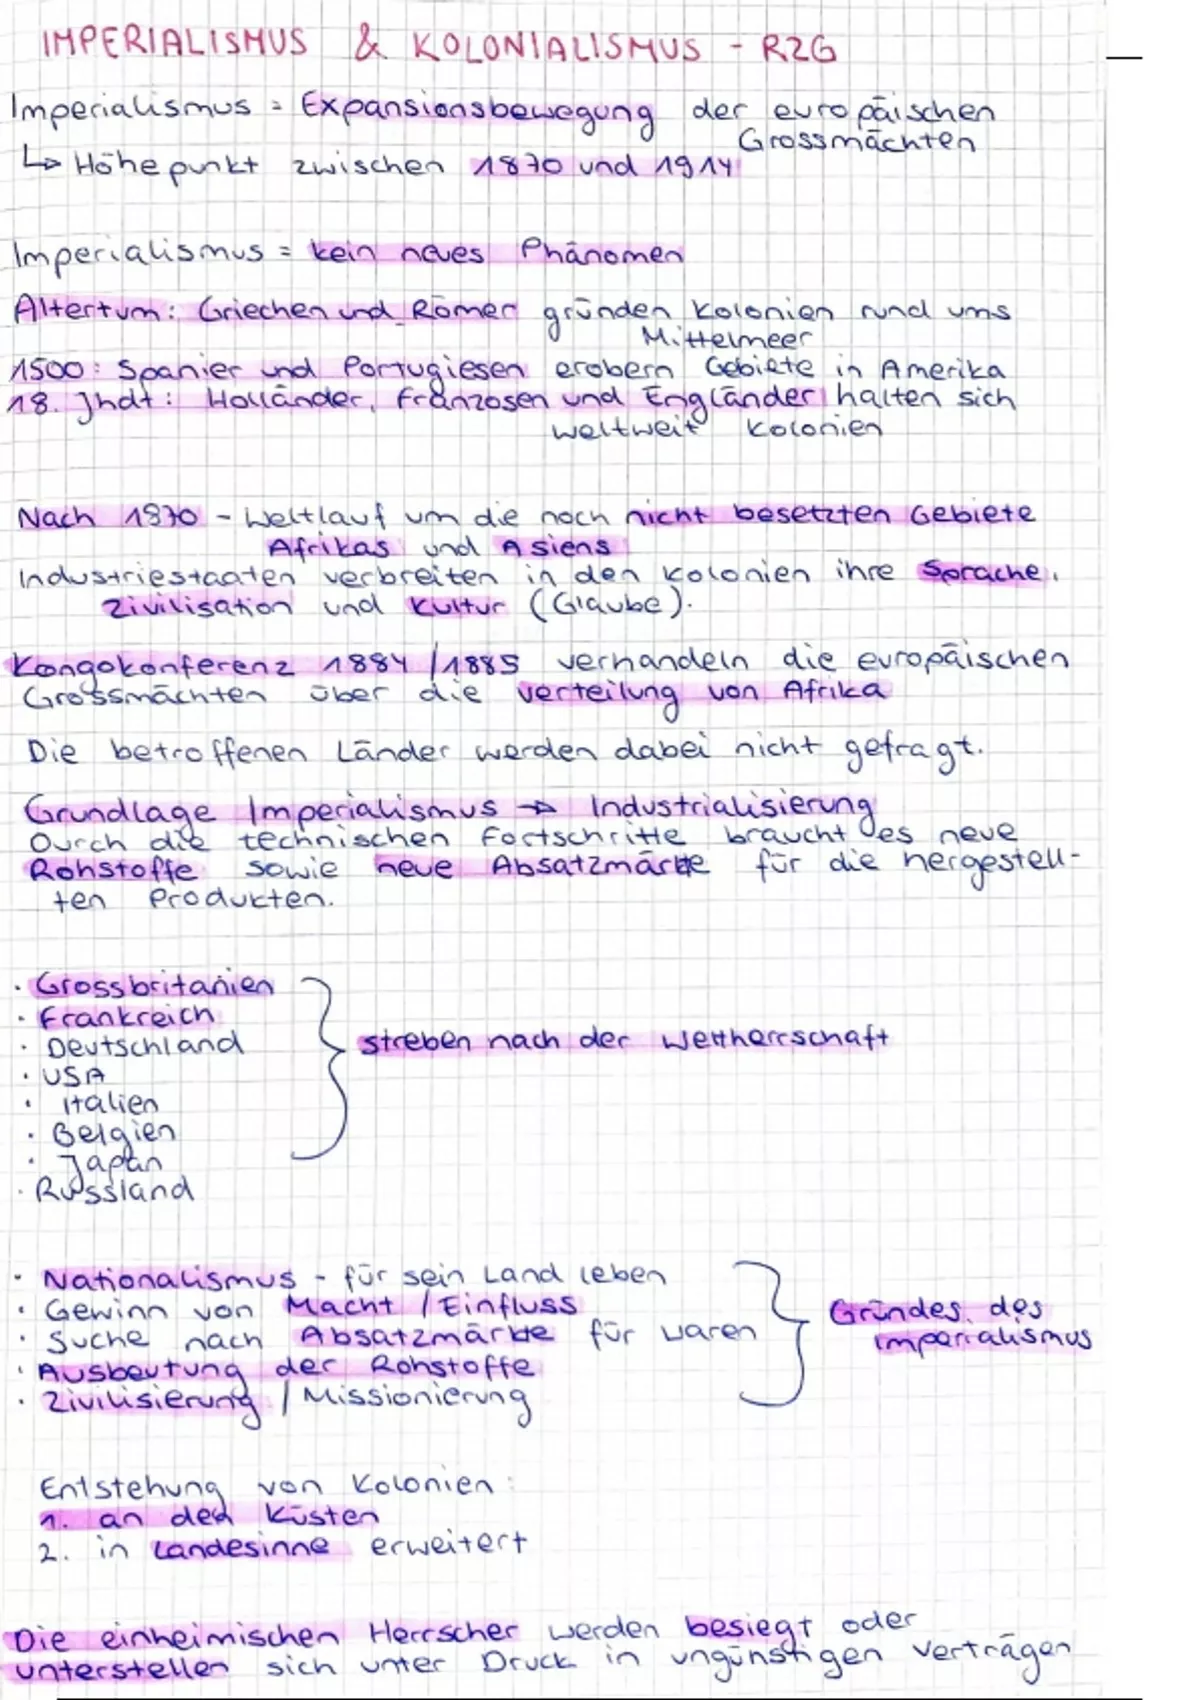 IMPERIALISMUS & KOLONIALISMUS - RZG
Imperialismus = Expansionsbewegung der europäischen
Grossmächten
↳ Höhepunkt zwischen 1870 und 1914
Imperialismus = kein neues Phänomen
Altertum: Griechen und Römer gründen Kolonien rund ums
Mittelmeer
1500: Spanier und Portugiesen erobern Gebiete in Amerika
18. Jhdt: Holländer, Franzosen und Engländer halten sich
weltweit Kolonien
Nach 1870 - Weltlauf um die noch nicht besetzten Gebiete
Afrikas und Asiens
Industriestaaten verbreiten in den Kolonien ihre Sprache,
Zivilisation und Kultur (Glaube).
Kongokonferenz 1884/1885 verhandeln die europäischen
Grossmächten über die Verteilung von Afrika
Die betroffenen Länder werden dabei nicht gefragt.
Grundlage Imperialismus → Industrialisierung
Durch die technischen Fortschritte braucht es neue
Rohstoffe sowie neue Absatzmärkte für die hergestell-
ten Produkten.
· Grossbritanien
· Frankreich
· Deutschland
· USA
· Italien
· Belgien
· Japan
· Russland
streben nach der Weltherrschaft
· Nationalismus - für sein Land leben
· Gewinn von Macht / Einfluss
· Suche nach Absatzmärkte für Waren
· Ausbeutung der Rohstoffe
· Zivilisierung / Missionierung
Gründes des
Imperialismus
Entstehung von Kolonien:
1. an den Küsten
2. in Landesinne erweitert
Die einheimischen Herrscher werden besiegt oder
unterstellen sich unter Druck in ungünstigen Verträgen